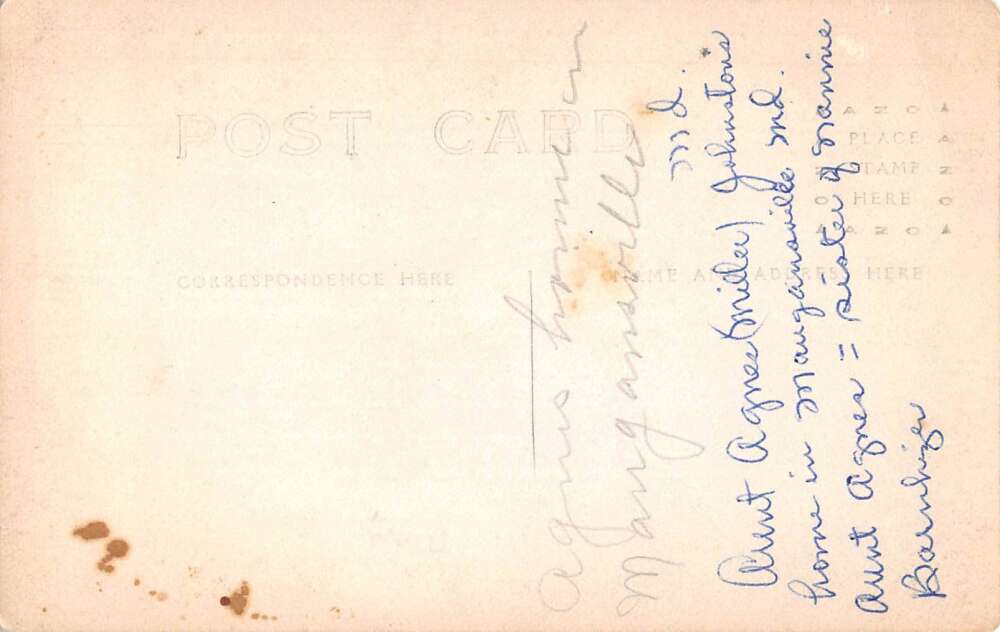 POST CARD
AZOA
PLACE
STAMP
HERE
AZOA
CORRESPONDENCE HERE
NAME AND ADDRESS HERE
Agnes home in
Maugansville
Md.
Aunt Agnes (Miller) Johnston's
home in Maugansville Md.
Aunt Agnes = sister of Nannie